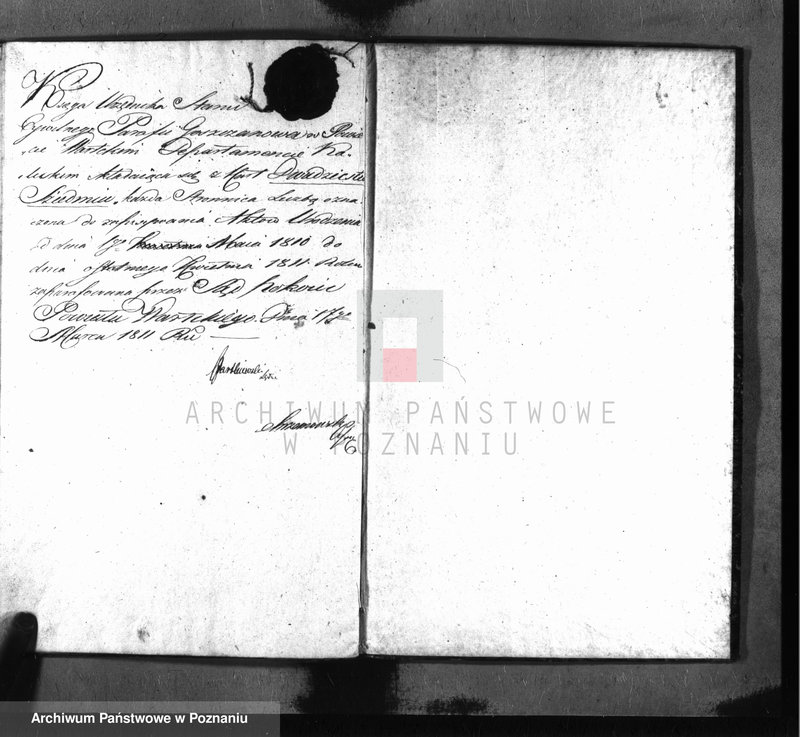 Księga Urodzenia Stanu
Cywilnego Parafii Goszczanowa w Powie
cie Wartskim Departamencie Ka
liskim składaiąca się z Kart Dwadziestu
Siedmiu, każda Stronnica Liczbą ozna
czona do zapisywania Aktów Urodzenia
od dnia 1go Maia 1810 do
dnia ostatniego Kwietnia 1811 Roku
zaparafowana przez Sąd Pokoiu
Powiatu Wartskiego. Dnia 17go
Marca 1811 Ru
ARCHIWUM PAŃSTWOWE
W POZNANIU
Archiwum Państwowe w Poznaniu